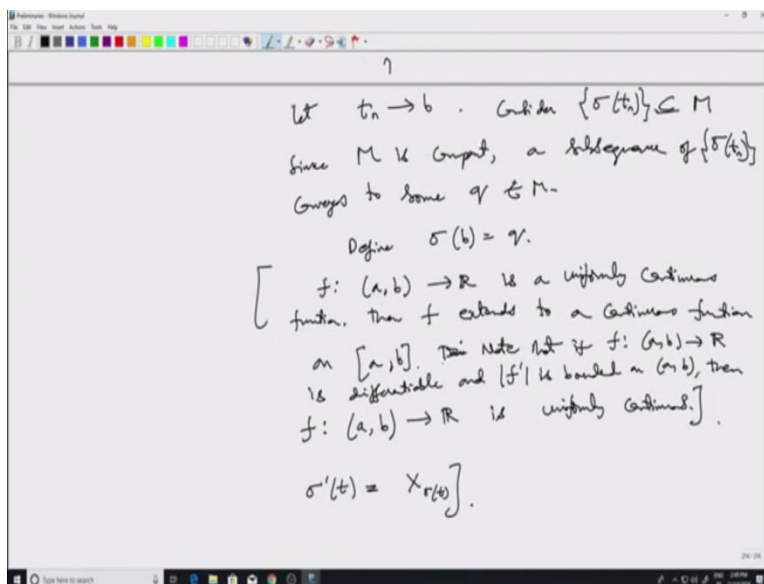 Preliminaries - Windows Journal
File Edit View Insert Actions Tools Help
B I
?
Let tₙ → b . Consider {σ(tₙ)} ⊆ M
Since M is compact, a subsequence of {σ(tₙ)}
converges to some q ∈ M.
Define σ(b) = q.
[ f: (a,b) → ℝ is a uniformly continuous
function. Then f extends to a continuous function
on [a,b]. Note that if f: (a,b) → ℝ
is differentiable and |f'| is bounded on (a,b), then
f: (a,b) → ℝ is uniformly continuous.].
σ'(t) = X_σ(t)].
24/24
Type here to search
2:49 PM